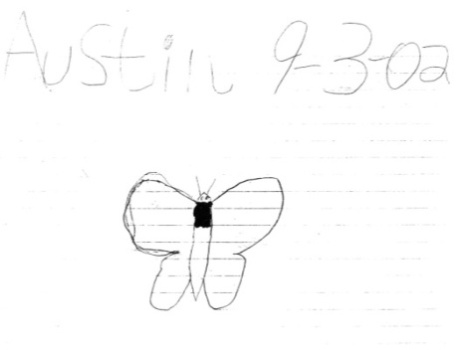 Austin 9-3-02